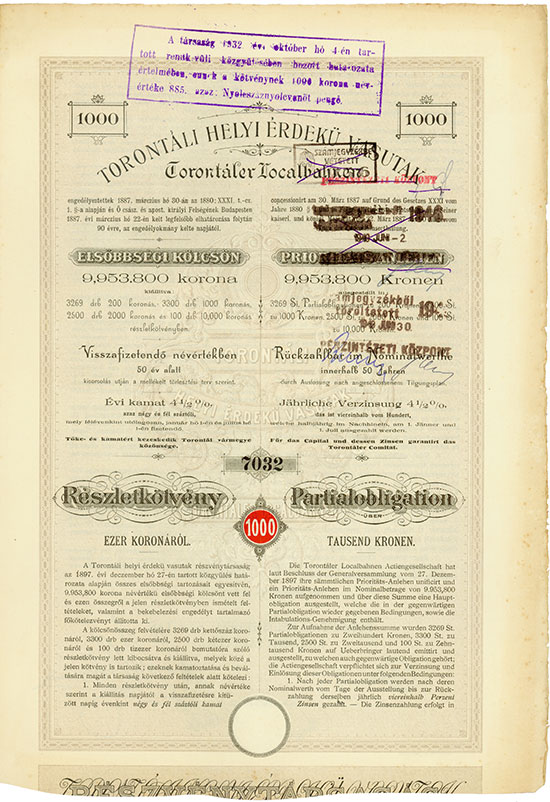 A társaság 1932 évi október hó 4-én tar-
tott rendkivüli közgyülésében hozott határozata
értelmében, ennek a kötvénynek 1000 korona név-
értéke 885. azaz: Nyolcsáznyolcvanöt pengő.
1000
1000
TORONTÁLI HELYI ÉRDEKŰ VASUTAK
Torontáler Localbahnen
engedélyeztettek 1887. március hó 30-án az 1880: XXXI. t.-cz.
1. §-a alapján és Ő csász. és apost. királyi Felségének Budapesten
1887. évi március hó 22-én kelt legfelsőbb elhatározása folytán
90 évre, az engedélyokmány kelte napjától.
concessionirt am 30. März 1887 auf Grund des Gesetzes XXXI vom
Jahre 1880
kaiserl. und
ELSŐBBSÉGI KÖLCSÖN
9,953.800 korona
kiállítva
3269 drb 200 koronás, 3300 drb 1000 koronás,
2500 drb 2000 koronás és 100 drb 10,000 koronás
részletkötvényben.
9,953.800 Kronen
3269 St. Partialobligationen zu 200
zu 1000 Kronen, 2500 St.
zu 10.000
JUN - 2
törültetett
JUN 30
PÉNZINTÉZETI KÖZPONT
Visszafizetendő névértékben
50 év alatt
kisorsolás utján a mellékelt törlesztési terv szerint.
Rückzahlbar im Nominalwerthe
innerhalb 50 Jahren
durch Auslosung nach angeschlossenem Tilgungsplan.
Évi kamat 4½%,
azaz négy és fél száztóli,
mely félévenkint utólagosan, január hó 1-én és julius hó
1-én fizetendő.
Jährliche Verzinsung 4½%,
das ist viereinhalb vom Hundert,
welche halbjährig im Nachhinein, am 1. Jänner und
1. Juli ausgezahlt werden.
Tőke- és kamatért kezeskedik Torontál vármegye
közönsége.
Für das Capital und dessen Zinsen garantirt das
Torontáler Comitat.
7032
Részletkötvény
Partialobligation
ÜBER
1000
EZER KORONÁRÓL.
TAUSEND KRONEN.
A Torontáli helyi érdekű vasutak részvénytársaság
az 1897. évi deczember hó 27-én tartott közgyűlés hatá-
rozata alapján összes elsőbbségi tartozásait egyesitvén,
9.953,800 korona névértékű elsőbbségi kölcsönt vett fel
és ezen összegről a jelen részletkötvényben ismételt fel-
tételeket, valamint a bekebelezési engedélyt tartalmazó
főkötelezvényt állitotta ki.
A kölcsönösszeg felvételére 3269 drb kétszáz koronás,
3300 drb ezer koronáról, 2500 drb kétezer koro-
náról és 100 drb tizezer koronáról bemutatóra szóló
részletkötvény lett kibocsátva és kiállitva, melyek közé a
jelen kötvény is tartozik; ezeknek kamatoztatása és bevál-
tására magát a társaság következő feltételek alatt kötelezi:
1. Minden részletkötvény után, annak névértéke
szerint a kiállitás napjától a visszafizetésre kitű-
zött napig évenkint négy és fél száztóli kamat
Die Torontáler Localbahnen Actiengesellschaft hat
laut Beschluss der Generalversammlung vom 27. Dezem-
ber 1897 ihre sämmtlichen Prioritäts-Anleihen unificirt und
ein Prioritäts-Anleihen im Nominalbetrage von 9.953.800
Kronen aufgenommen und über diese Summe eine Haupt-
obligation ausgestellt, welche die in der gegenwärtigen
Partialobligation wieder gegebenen Bedingungen, sowie die
Intabulations-Genehmigung enthält.
Zur Aufnahme der Anlehenssumme wurden 3269 St.
Partialobligationen zu Zweihundert Kronen, 3300 St. zu
Tausend, 2500 St. zu Zweitausend und 100 St. zu Zehn-
tausend Kronen auf Ueberbringer lautend emittirt und
ausgestellt, zu welchen auch gegenwärtige Obligation gehört;
die Actiengesellschaft verpflichtet sich zur Verzinsung und
Einlösung dieser Obligationen unter folgenden Bedingungen:
1. Nach jeder Partialobligation werden nach deren
Nominalwerth vom Tage der Ausstellung bis zur Rück-
zahlung derselben jährlich viereinhalb Perzent
Zinsen gezahlt. — Die Zinsenzahlung erfolgt in